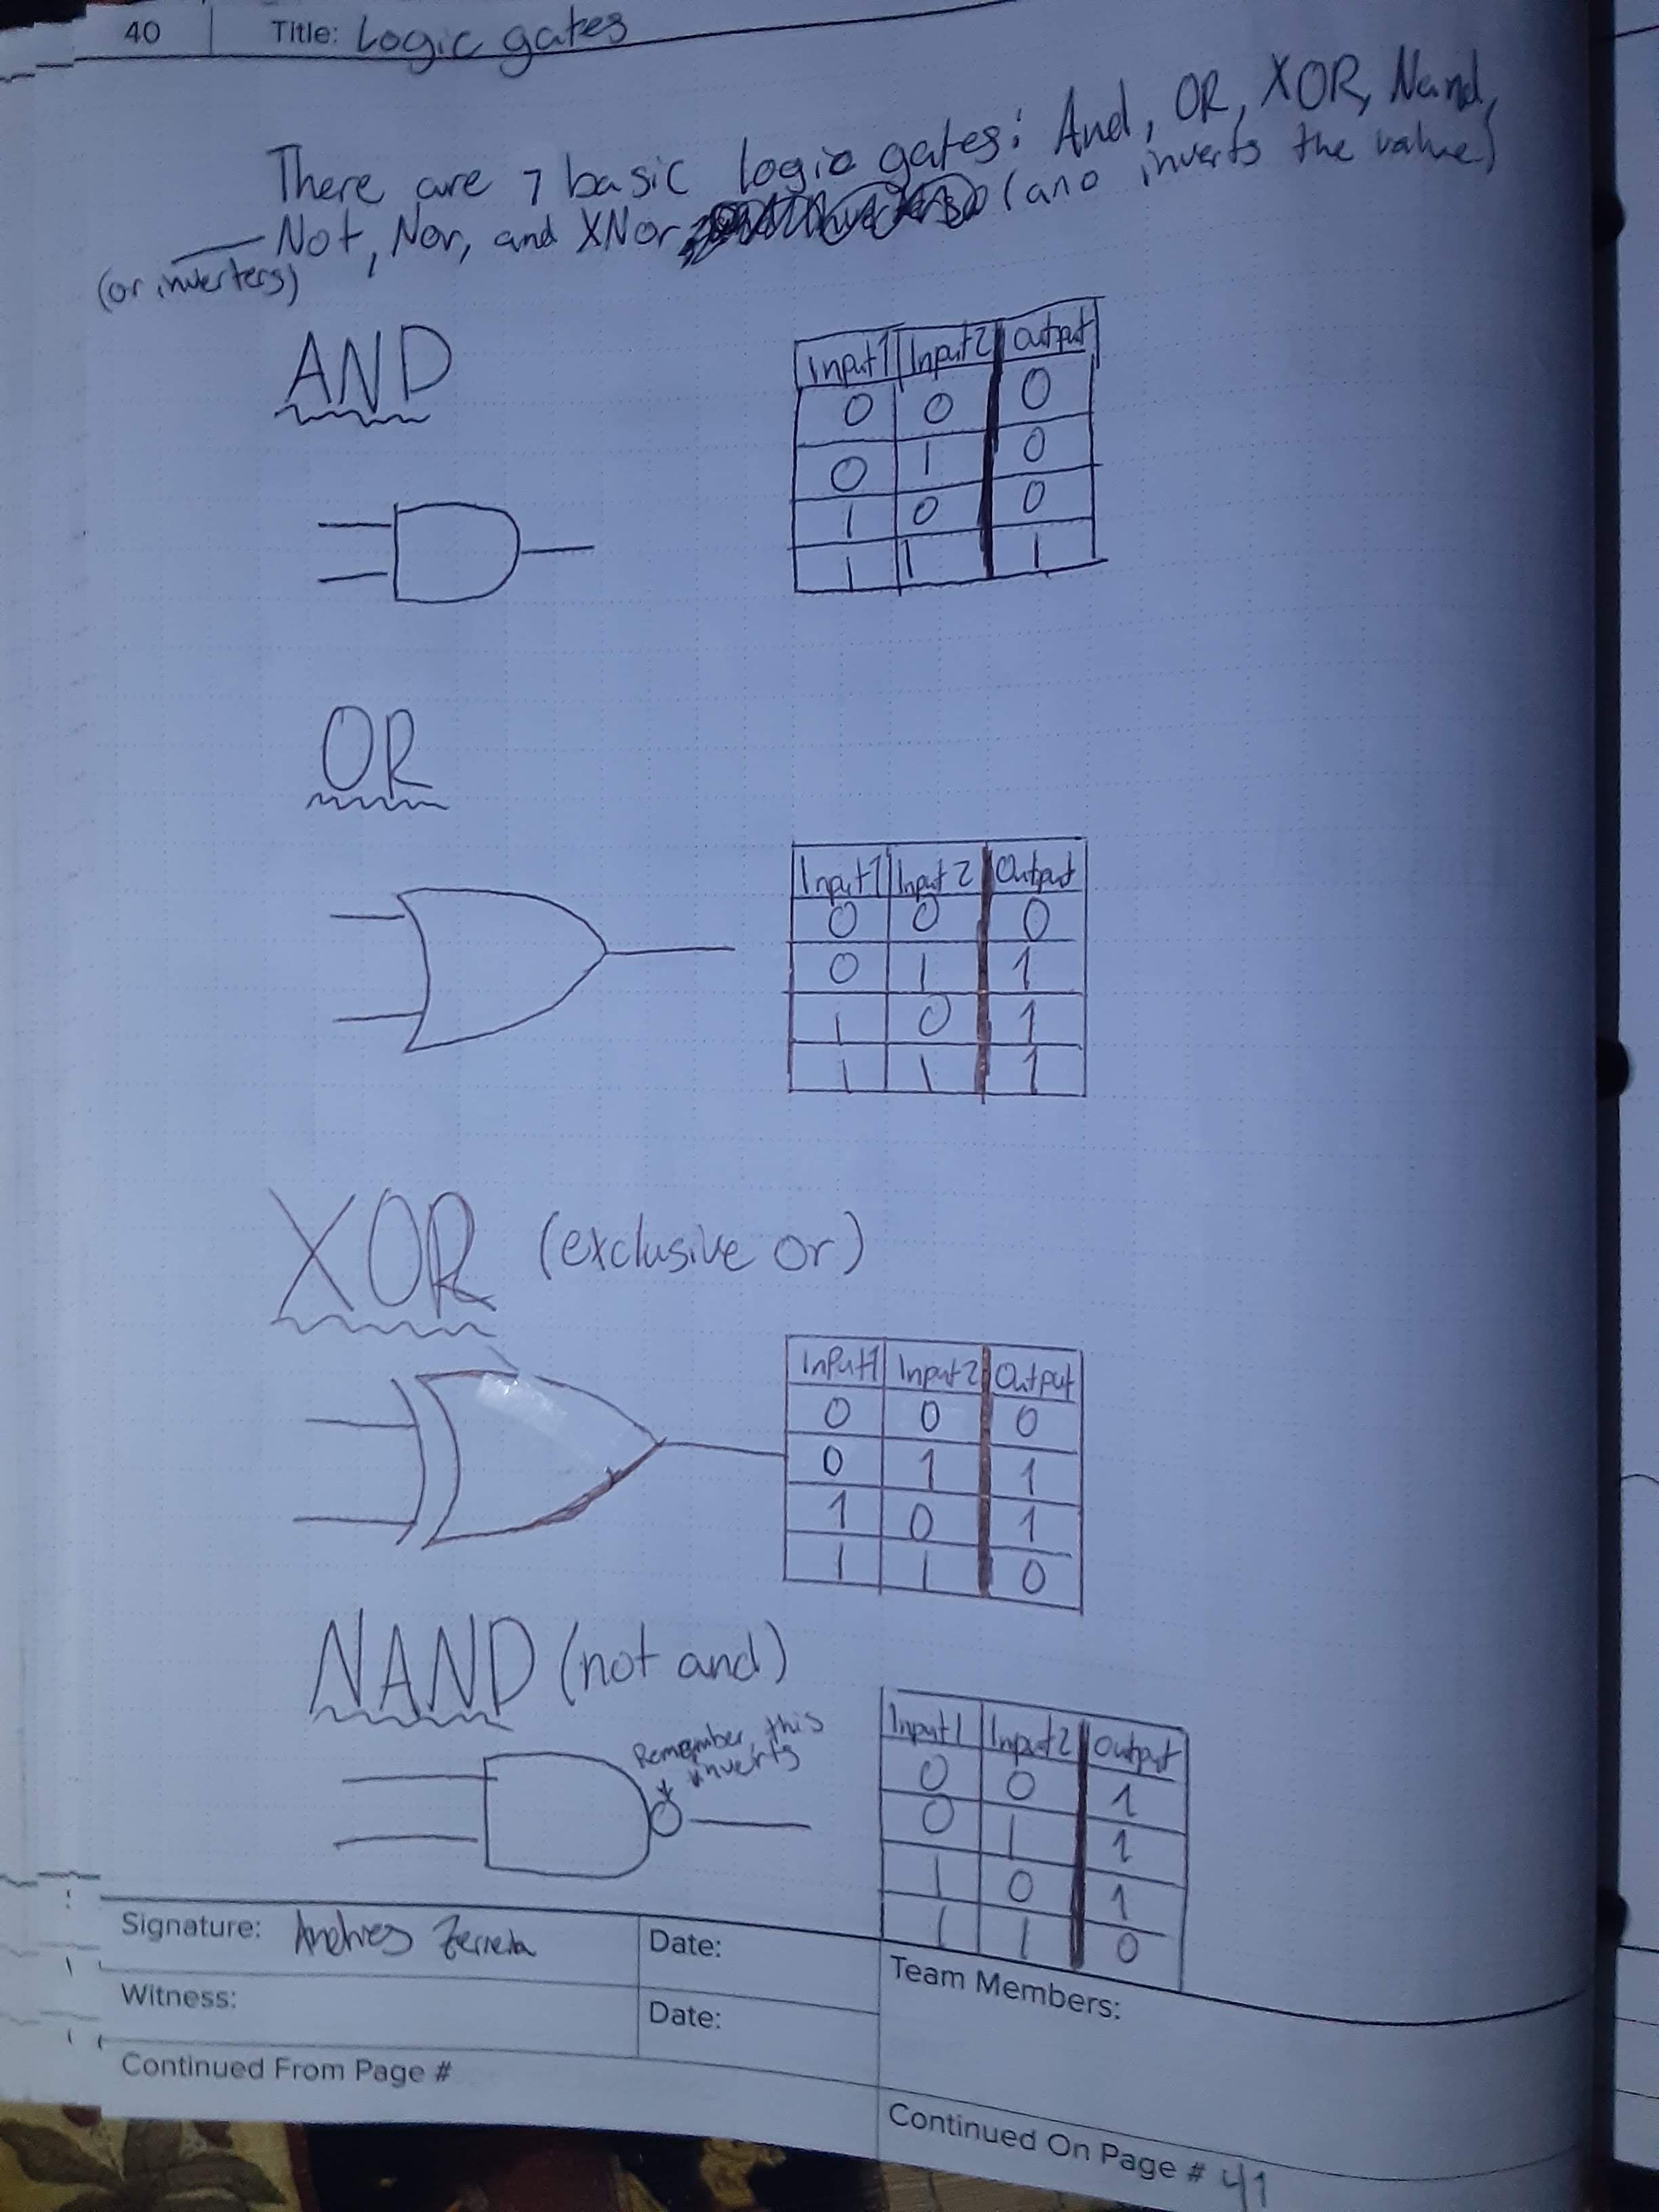 40 Title: Logic gates
There are 7 basic logic gates: And, OR, XOR, Nand,
Not, Nor, and XNor (ano inverts the value)
(or inverters)
AND
Input1 Input2 Output
0 0 0
0 1 0
1 0 0
1 1 1
OR
Input1 Input2 Output
0 0 0
0 1 1
1 0 1
1 1 1
XOR (exclusive or)
Input1 Input2 Output
0 0 0
0 1 1
1 0 1
1 1 0
NAND (not and)
Remember, this
inverts
Input1 Input2 Output
0 0 1
0 1 1
1 0 1
1 1 0
Signature: Date:
Witness: Date:
Team Members:
Continued From Page #
Continued On Page # 41